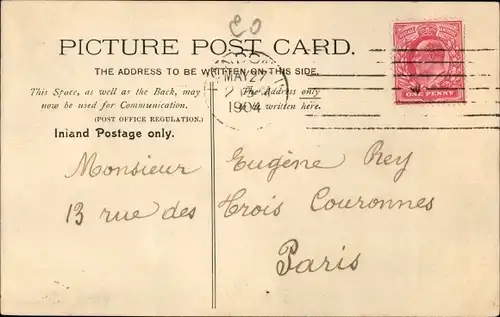 CO
PICTURE POST CARD.
THE ADDRESS TO BE WRITTEN ON THIS SIDE.
This Space, as well as the Back, may
now be used for Communication.
(POST OFFICE REGULATION.)
Inland Postage only.
The Address only
be written here.
MAY 27
1904
ONE PENNY
Monsieur Eugène Rey
13 rue des Trois Couronnes
Paris